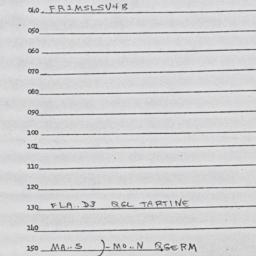 040 FR2MSLSV4B
050
060
070
080
090
100
101
110
120
130 FLA..D3 QGL TARTINE
140
150 MA..S )-MO..N QSERM